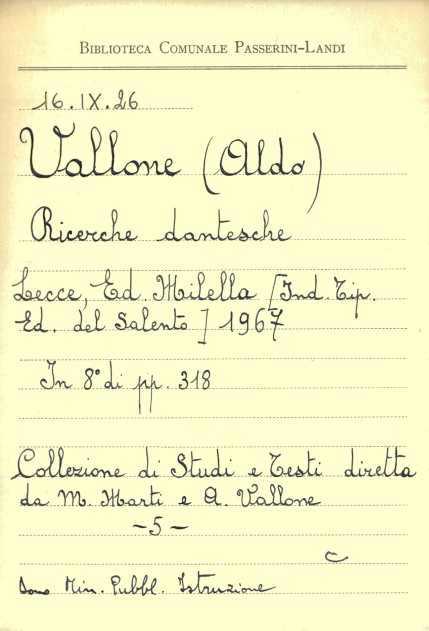 BIBLIOTECA COMUNALE PASSERINI-LANDI
16.IX.26
Vallone (Aldo)
Ricerche dantesche
Lecce, Ed. Milella [Ind. Tip.
Ed. del Salento] 1967
In 8° di pp. 318
Collezione di Studi e Testi diretta
da M. Marti e A. Vallone
-5-
C
Dono Min. Pubbl. Istruzione